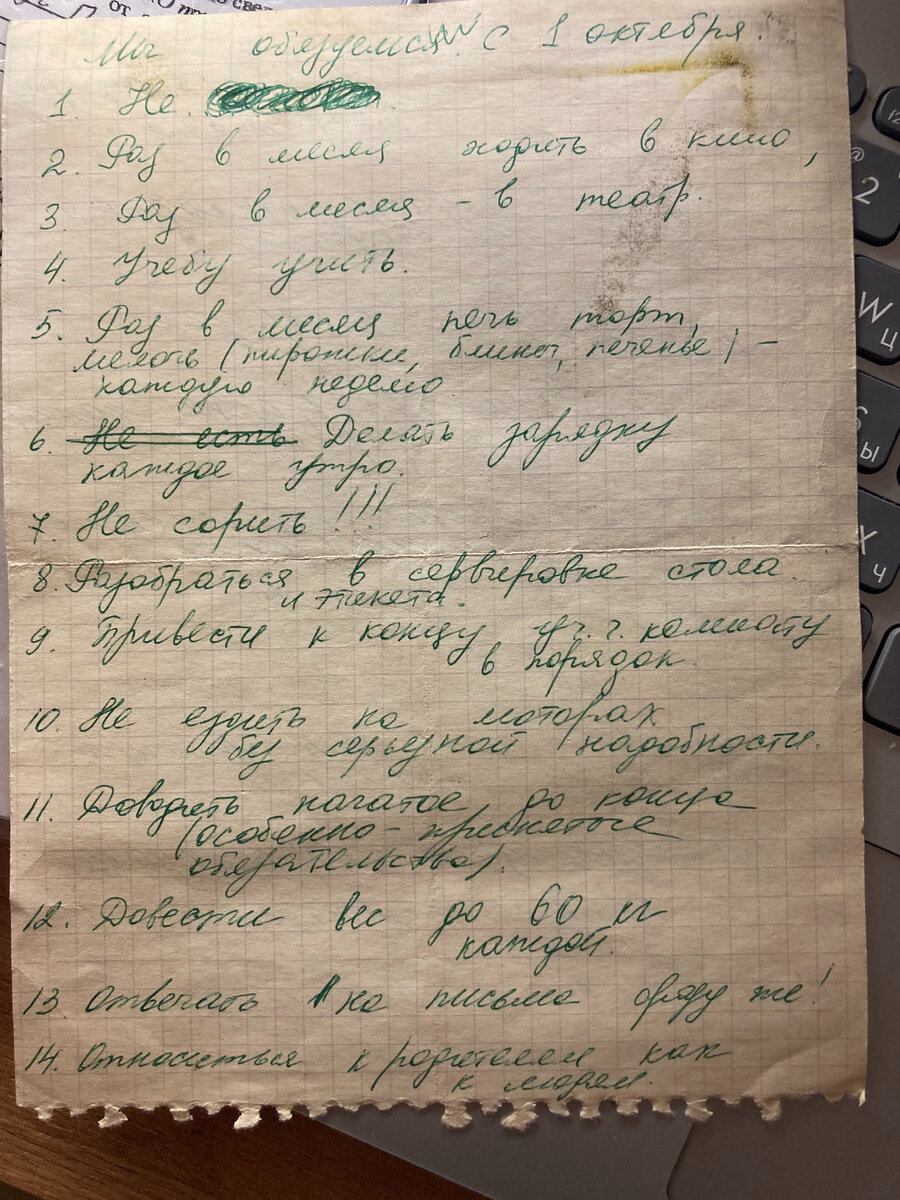 Мы обязуемся с 1 октября.
1. Не
2. Раз в месяц ходить в кино,
3. Раз в месяц – в театр.
4. Учебу учить.
5. Раз в месяц печь торт,
мелочь (пирожки, блины, печенье) –
каждую неделю
6. Не есть Делать зарядку
каждое утро.
7. Не сорить!!!
8. Разобраться в сервировке стола
и этикета.
9. Привести к концу уч. г. комнату
в порядок.
10. Не ездить на моторах
без серьезной надобности.
11. Доводить начатое до конца
(особенно – принятые
обязательства).
12. Довести вес до 60 кг
каждой.
13. Отвечать на письма сразу же!
14. Относиться к родителям как
к людям.
2
W
Ц
S
Ы
X
Ч